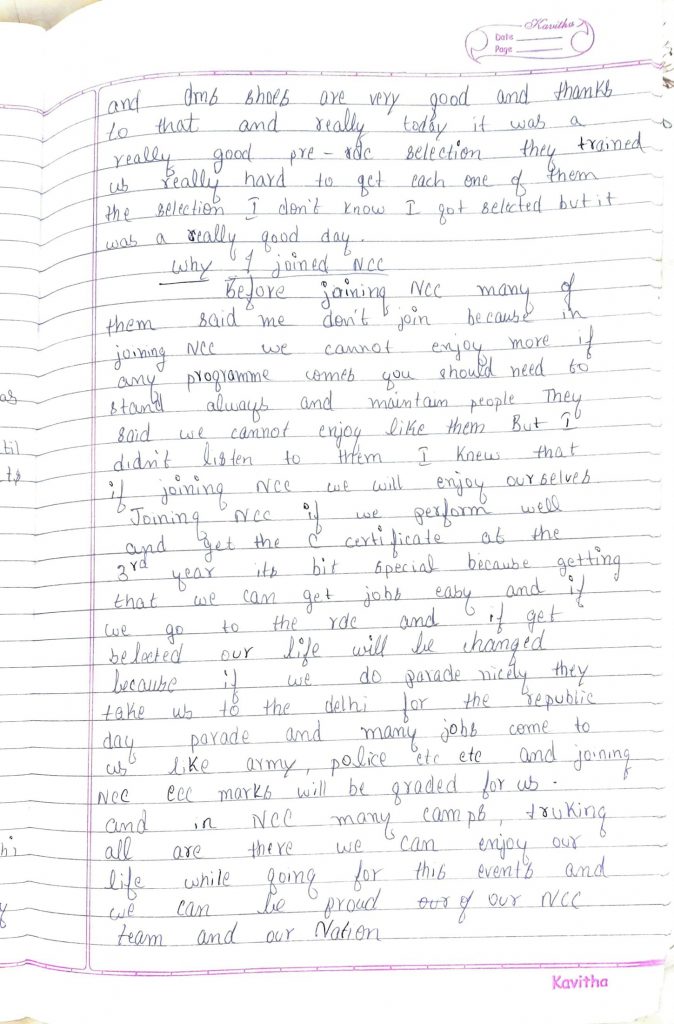 Kavitha
Date
Page
and dms shoes are very good and thanks
to that and really today it was a
really good pre-rdc selection they trained
us really hard to get each one of them
the selection I don't know I got selected but it
was a really good day.
Why I joined NCC
Before joining NCC many of
them said me don't join because in
joining NCC we cannot enjoy more if
any programme comes you should need to
stand always and maintain people They
said we cannot enjoy like them But I
didn't listen to them I knew that
if joining NCC we will enjoy ourselves
Joining NCC if we perform well
and get the C certificate at the
3rd year its bit special because getting
that we can get jobs easy and if
we go to the rdc and if get
selected our life will be changed
because if we do parade nicely they
take us to the delhi for the republic
day parade and many jobs come to
us like army, police etc etc and joining
NCC ecc marks will be graded for us.
and in NCC many camps, truking
all are there we can enjoy our
life while going for this events and
we can be proud of our NCC
team and our Nation
Kavitha